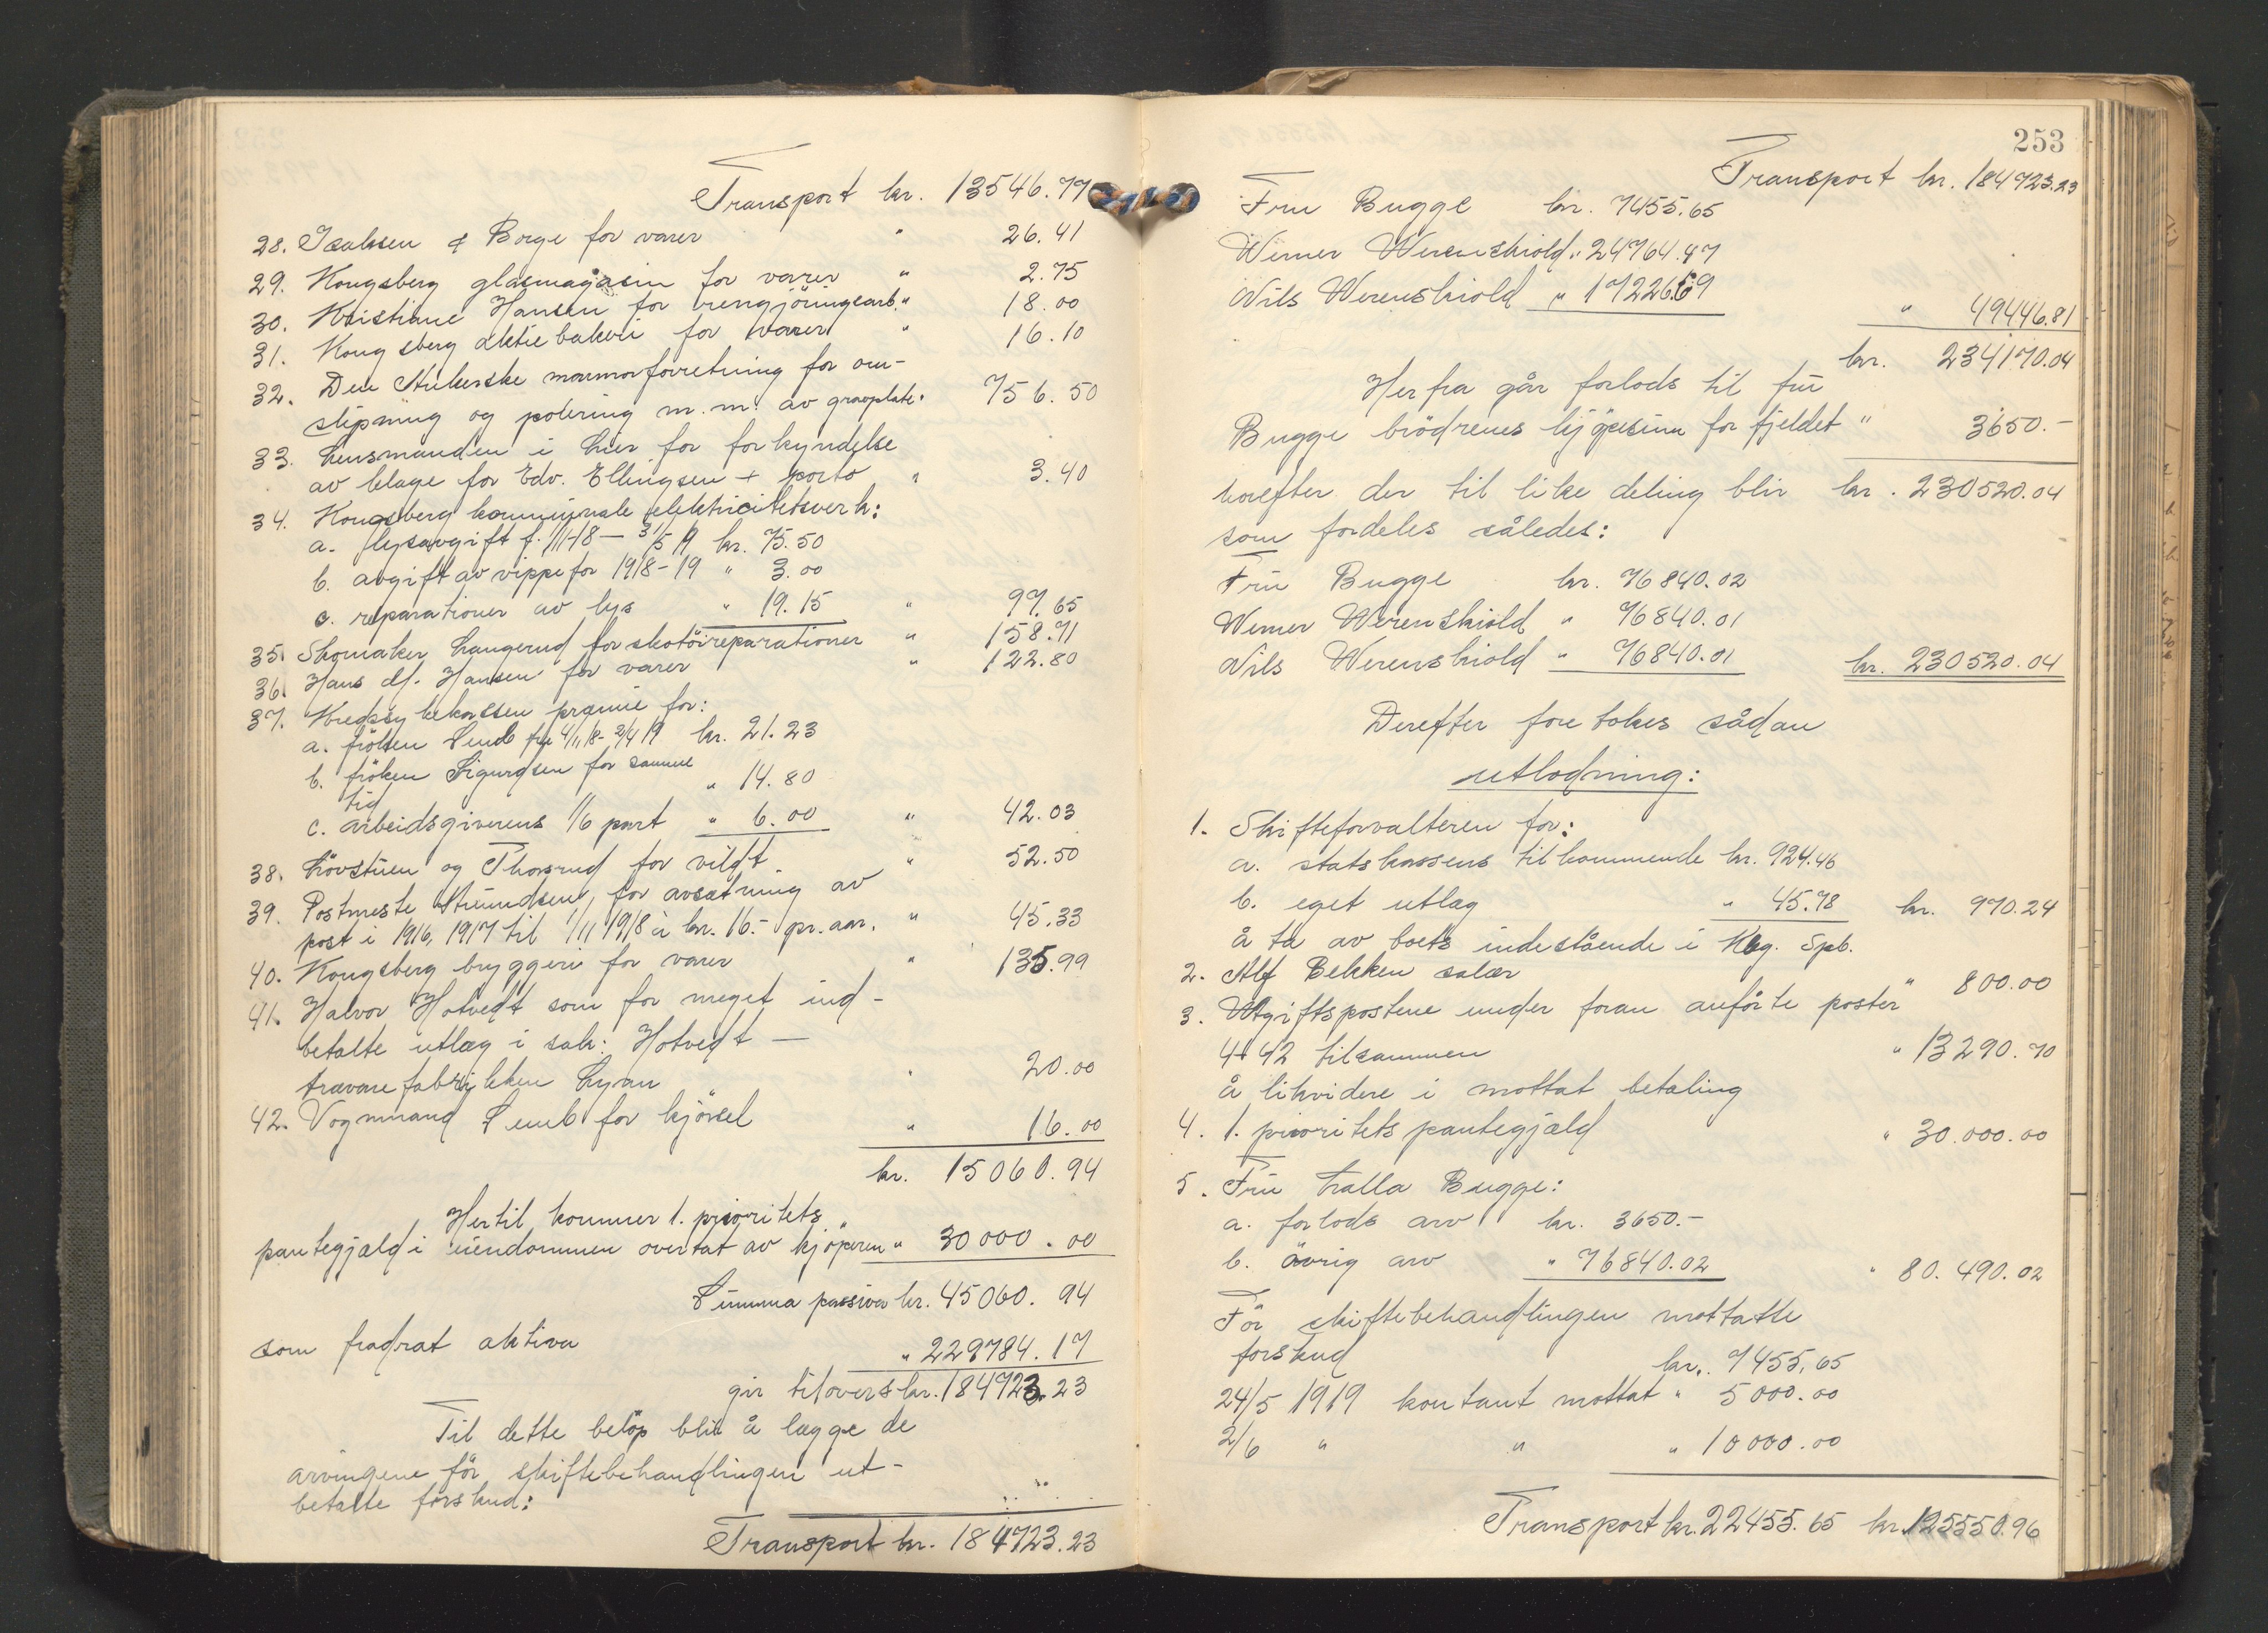 Transport kr. 13546.77
28. Isaksen & Borge for varer " 26.41
29. Kongsberg glasmagasin for varer " 2.75
30. Kristiane Hansen for rengjöringsarb. " 18.00
31. Kongsberg aktiebakeri for varer " 16.10
32. Den Ankerske marmorforretning for om-
slipning og polering m.m. av gravplate " 756.50
33. Lensmanden i Lier for forkyndelse
av klage for Edv. Ellingsen + porto " 3.40
34. Kongsberg kommunale elektricitetsverk:
a. lysavgift f. 1/11 18 – 31/5 19 kr. 75.50
b. avgift av vippe for 1918-19 " 3.00
c. reparationer av lys " 19.15 " 97.65
35. Skomaker Langerud for skotöireparationer " 158.71
36. Hans M. Hansen for varer " 122.80
37. Kredssykekassen præmie for:
a. fröken Semb fra 4/11 18 - 2/4 19 kr. 21.23
b. fröken Sigurdsen for samme
tid " 14.80
c. arbeidsgiverens 1/6 part " 6.00 " 42.03
38. Lövstuen og Thorsrud for vildt " 52.50
39. Postmester Amundsen, for avsætning av
post i 1916, 1917 til 1/11 1918 à kr. 16.- pr. aar. " 45.33
40. Kongsberg bryggeri for varer " 135.99
41. Halvor Hotvedt som for meget ind-
betalte utlæg i sak: Hotvedt –
trævarefabrikken Lyan " 20.00
42. Vognmand Semb for kjörsel " 16.00
kr. 15060.94
Hertil kommer 1. prioritets
pantegjæld i eiendommen overtat av kjöperen " 30000.00
Summa passiva kr. 45060.94
som fradrat aktiva " 229784.17
gir tilovers kr. 184723.23
Til dette belöp blir å lægge de
arvingene för skiftebehandlingen ut-
betalte forskud:
Transport kr. 184723.23
253
Transport kr. 184723.23
Fru Bugge kr. 7455.65
Werner Werenskiold " 24764.47
Nils Werenskiold " 17226.69 " 49446.81
kr. 234170.04
Herfra går forlods til fru
Bugge brödrenes kjöpesum for fjeldet " 3650.-
hvorefter der til like deling blir kr. 230520.04
som fordeles således:
Fru Bugge kr. 76840.02
Werner Werenskiold " 76840.01
Nils Werenskiold " 76840.01 kr. 230520.04
Derefter foretokes sådan
utlodning:
1. Skifteforvalteren for:
a. statskassens tilkommende kr. 924.46
b. eget utlæg " 45.78 kr. 970.24
å ta av boets indestående i Kbg. Spb.
2. Alf Bekken salær " 800.00
3. Utgiftspostene under foran anförte poster
4-42 tilsammen " 13290.70
å likvidere i mottat betaling
4. 1. prioritets pantegjæld " 30.000.00
5. Fru Lalla Bugge:
a. forlods arv kr. 3650.-
b. övrig arv " 76840.02 " 80.490.02
För skiftebehandlingen mottatte
forskud kr. 7455.65
24/5 1919 kontant mottat " 5000.00
2/6 " " " 10000.00
Transport kr. 22455.65 kr. 125550.96